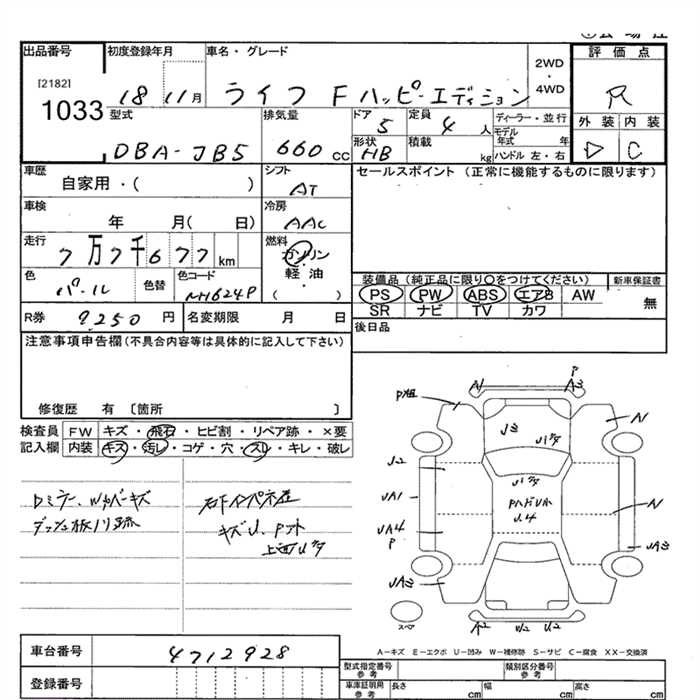 出品番号 初度登録年月 車名・グレード 評価点
[2182]
1033
18 11月 ライフ F ハッピーエディション
2WD
・
4WD
R
型式 排気量 ドア 定員 ディーラー・並行
DBA-JB5 660 CC 5 4 人
モデル年式 年
形状 積載
HB kg ハンドル 左・右
外装 内装
D C
車歴 シフト
自家用・( ) AT
セールスポイント (正常に機能するものに限ります)
車検 冷房
年 月( 日) AAC
走行 燃料
7万7千677km ガソリン
軽・油
( ・ )
色 色替 色コード
パール NH624P
装備品(純正品に限り○をつけてください) 新車保証書
PS PW ABS エアB AW 無
SR ナビ TV カワ
R券 9,250 円 名変期限 月 日
後日品
注意事項申告欄(不具合内容等は具体的に記入して下さい)
修復歴 有 〔箇所 〕
検査員 FW キズ・飛石・ヒビ割・リペア跡・×要
記入欄 内装 キズ・汚レ・コゲ・穴・スレ・キレ・破レ
A P
A3
N
U3
U2
UA1
UA4
P
UA3
N
N
UA3
A2 U2
スペア
A−キズ E−エクボ U−凹み W−補修跡 S−サビ C−腐食 XX−交換済
車台番号 4712928
登録番号
型式指定番号
参考
類別区分番号
参考
車庫証明用
参考
長さ cm 幅 cm 高さ cm